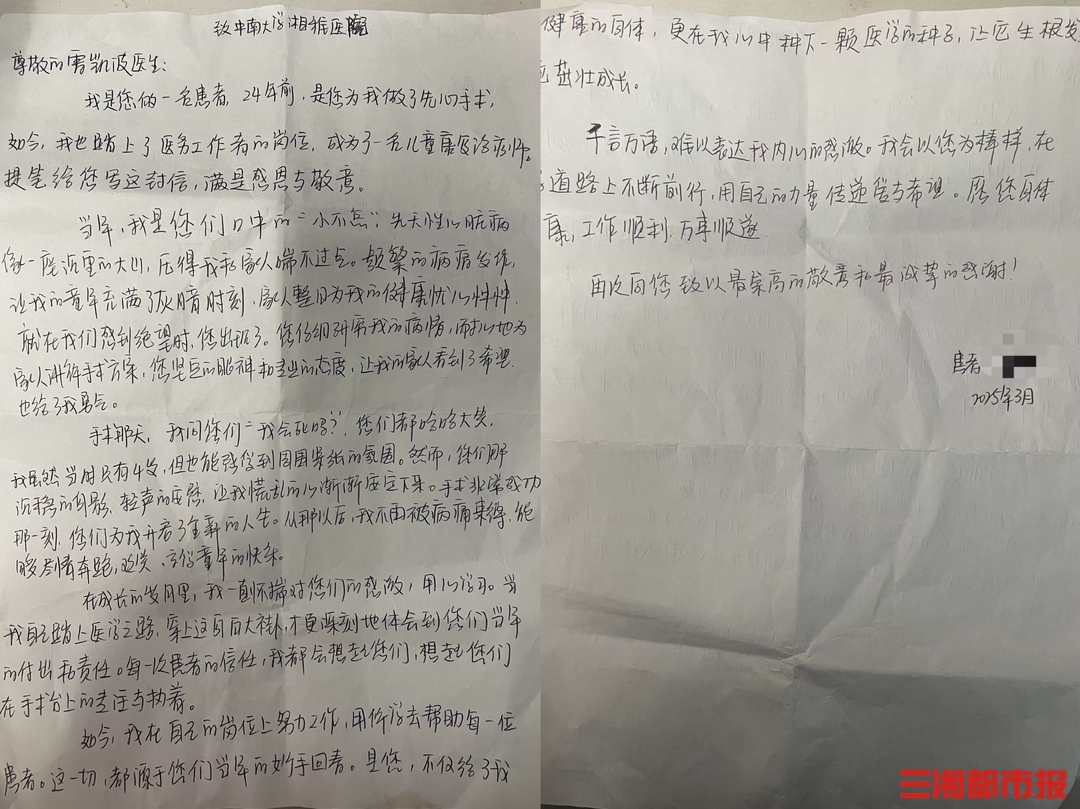 致中南大学湘雅医院
尊敬的雷凯及医生：
我是您做一名患者，24年前，是您为我做了先心手术，
如今，我也踏上了医务工作者的岗位，成为了一名儿童康复治疗师。
提笔给您写这封信，满是感恩与敬意。
当年，我是您们口中的“小不点”，先天性心脏病
像一座沉重的大山，压得我和家人喘不过气。频繁的病痛发作，
让我的童年充满了灰暗时刻，家人整日为我的健康忧心忡忡。
就在我们感到绝望时，您出现了。您仔细研究我的病情，耐心地为
家人讲解手术方案，您坚定的眼神和专业的态度，让我的家人看到了希望，
也给了我勇气。
手术那天，我问您们“我会死吗？”，您们都哈哈大笑，
我虽然当时只有4岁，但也能感受到周围紧张的氛围。然而，您们那
沉稳的身影，轻声的安慰，让我慌乱的心渐渐安定下来。手术非常成功
那一刻，您们为我开启了全新的人生。从那以后，我不再被病痛束缚，能
够尽情奔跑，欢笑，享受童年的快乐。
在成长的岁月里，我一直怀揣对您们的感激，用心学习。当
我自己踏上医学之路，穿上这身白大褂，才更深刻地体会到您们当年
的付出和责任。每一次患者的信任，我都会想起您们，想起您们
在手术台上的专注与执着。
如今，我在自己的岗位上努力工作，用所学去帮助每一位
患者。这一切，都源于您们当年的妙手回春。是您，不仅给了我
健康的身体，更在我心中种下一颗医学的种子，让它生根发
茁壮成长。
千言万语，难以表达我内心的感激。我会以您为榜样，在
道路上不断前行，用自己的力量传递爱与希望。愿您身体
康，工作顺利，万事顺遂
再次向您致以最崇高的敬意和最诚挚的感谢！
患者
2025年3月
三湘都市报